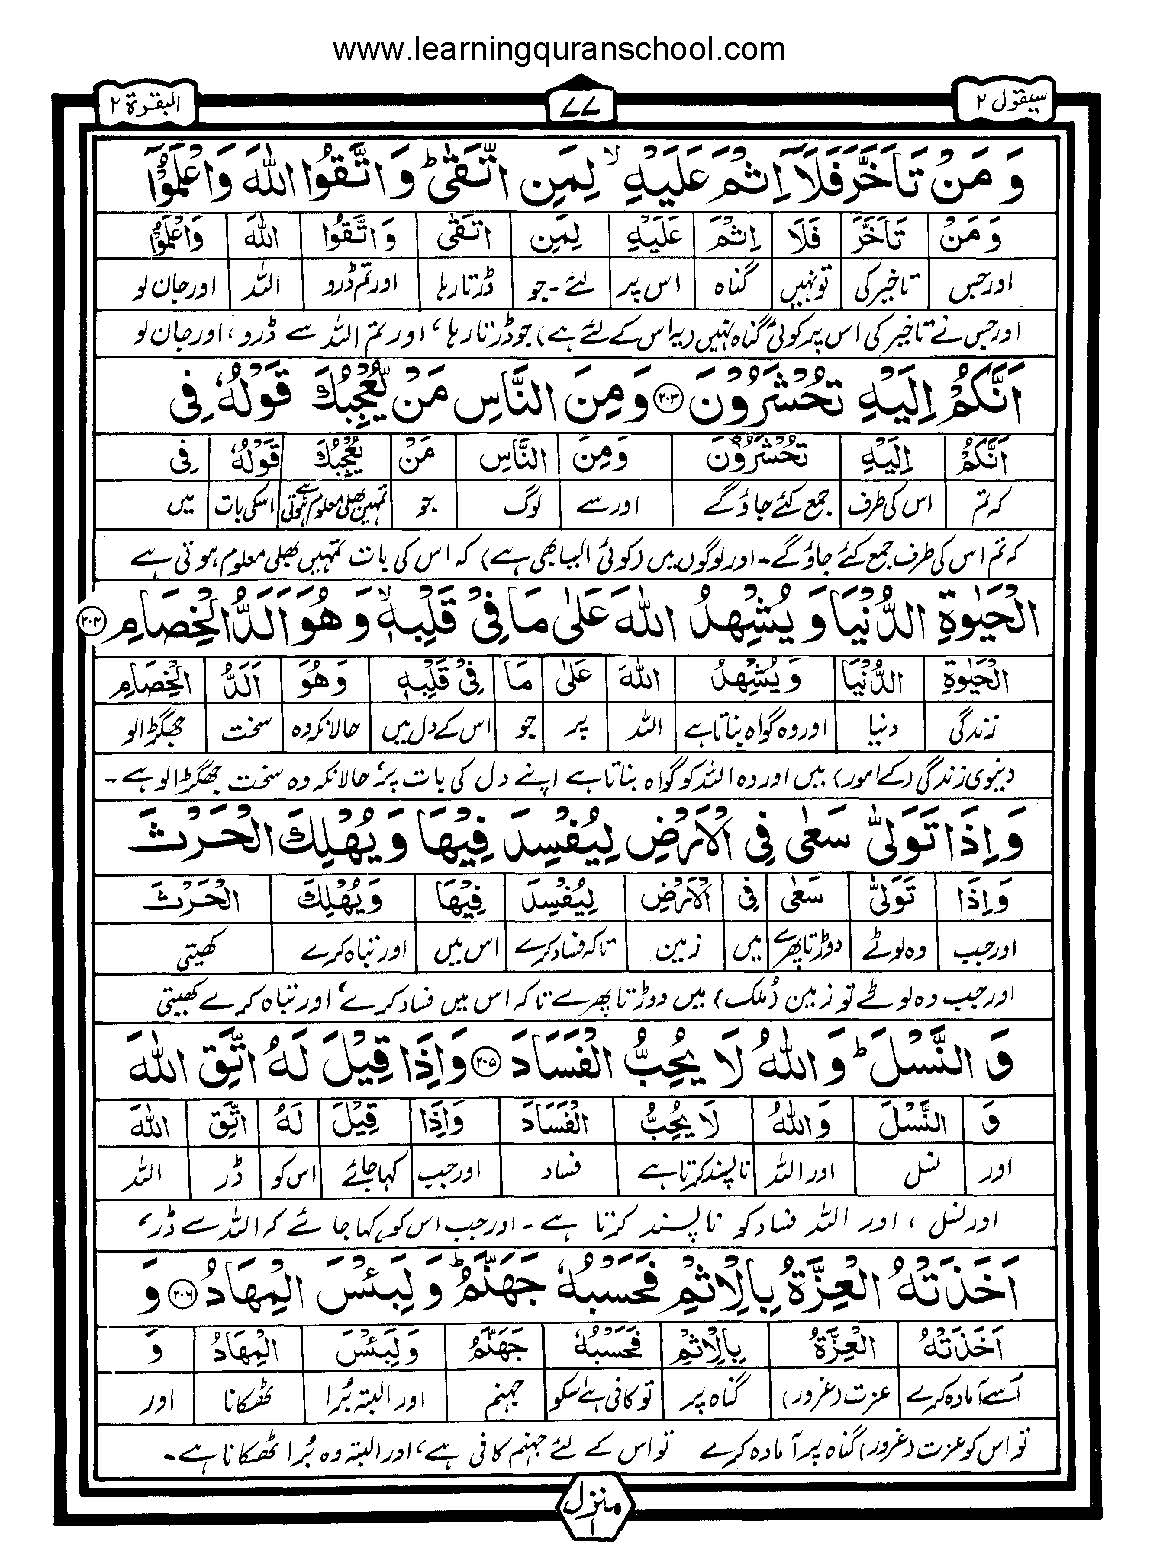 www.learningquranschool.com
سیقول ۲ ۷۷ البقرۃ ۲
وَمَنْ تَاَخَّرَ فَلَاۤ اِثْمَ عَلَیْهِ ۙ لِمَنِ اتَّقٰی ؕ وَاتَّقُوا اللّٰهَ وَاعْلَمُوْۤا
وَمَنْ تَاَخَّرَ فَلَا اِثْمَ عَلَیْهِ لِمَنِ اتَّقٰی وَاتَّقُوا اللّٰهَ وَاعْلَمُوْۤا
اور جس تاخیر کی تو نہیں گناہ اس پر لئے۔ جو ڈرتا رہا اور تم ڈرو اللہ اور جان لو
اور جس نے تاخیر کی اس پر کوئی گناہ نہیں (یہ اس کے لئے ہے) جو ڈرتا رہا، اور تم اللہ سے ڈرو، اور جان لو
اَنَّكُمْ اِلَیْهِ تُحْشَرُوْنَ ۲۰۳ وَمِنَ النَّاسِ مَنْ یُّعْجِبُكَ قَوْلُهٗ فِی
اَنَّكُمْ اِلَیْهِ تُحْشَرُوْنَ وَمِنَ النَّاسِ مَنْ یُّعْجِبُكَ قَوْلُهٗ فِی
کہ تم اس کی طرف جمع کئے جاؤ گے اور سے لوگ جو تمہیں بھلی معلوم ہوتی ہے اسکی بات میں
کہ تم اس کی طرف جمع کئے جاؤ گے۔ اور لوگوں میں (کوئی ایسا بھی ہے) کہ اس کی بات تمہیں بھلی معلوم ہوتی ہے
الْحَیٰوةِ الدُّنْیَا وَیُشْهِدُ اللّٰهَ عَلٰی مَا فِیْ قَلْبِهٖ ۙ وَهُوَ اَلَدُّ الْخِصَامِ ۲۰۴
الْحَیٰوةِ الدُّنْیَا وَیُشْهِدُ اللّٰهَ عَلٰی مَا فِیْ قَلْبِهٖ وَهُوَ اَلَدُّ الْخِصَامِ
زندگی دنیا اور وہ گواہ بناتا ہے اللہ پر جو اس کے دل میں حالانکہ وہ سخت جھگڑالو
دنیوی زندگی (کے امور) میں اور وہ اللہ کو گواہ بناتا ہے اپنے دل کی بات پر، حالانکہ وہ سخت جھگڑالو ہے۔
وَاِذَا تَوَلّٰی سَعٰی فِی الْاَرْضِ لِیُفْسِدَ فِیْهَا وَیُهْلِكَ الْحَرْثَ
وَاِذَا تَوَلّٰی سَعٰی فِی الْاَرْضِ لِیُفْسِدَ فِیْهَا وَیُهْلِكَ الْحَرْثَ
اور جب وہ لوٹے دوڑتا پھرے میں زمین تاکہ فساد کرے اس میں اور تباہ کرے کھیتی
اور جب وہ لوٹے تو زمین (ملک) میں دوڑتا پھرے تاکہ اس میں فساد کرے، اور تباہ کرے کھیتی
وَالنَّسْلَ ؕ وَاللّٰهُ لَا یُحِبُّ الْفَسَادَ ۲۰۵ وَاِذَا قِیْلَ لَهُ اتَّقِ اللّٰهَ
وَ النَّسْلَ وَاللّٰهُ لَا یُحِبُّ الْفَسَادَ وَاِذَا قِیْلَ لَهُ اتَّقِ اللّٰهَ
اور نسل اور اللہ ناپسند کرتا ہے فساد اور جب کہا جائے اس کو ڈر اللہ
اور نسل، اور اللہ فساد کو ناپسند کرتا ہے۔ اور جب اس کو کہا جائے کہ اللہ سے ڈر،
اَخَذَتْهُ الْعِزَّةُ بِالْاِثْمِ فَحَسْبُهٗ جَهَنَّمُ ؕ وَلَبِئْسَ الْمِهَادُ ۲۰۶ وَ
اَخَذَتْهُ الْعِزَّةُ بِالْاِثْمِ فَحَسْبُهٗ جَهَنَّمُ وَلَبِئْسَ الْمِهَادُ وَ
اسے آمادہ کرے عزت (غرور) گناہ پر تو کافی ہے اسکو جہنم اور البتہ بُرا ٹھکانا اور
تو اس کو عزت (غرور) گناہ پر آمادہ کرے تو اس کے لئے جہنم کافی ہے، اور البتہ وہ بُرا ٹھکانا ہے۔
منزل ۱